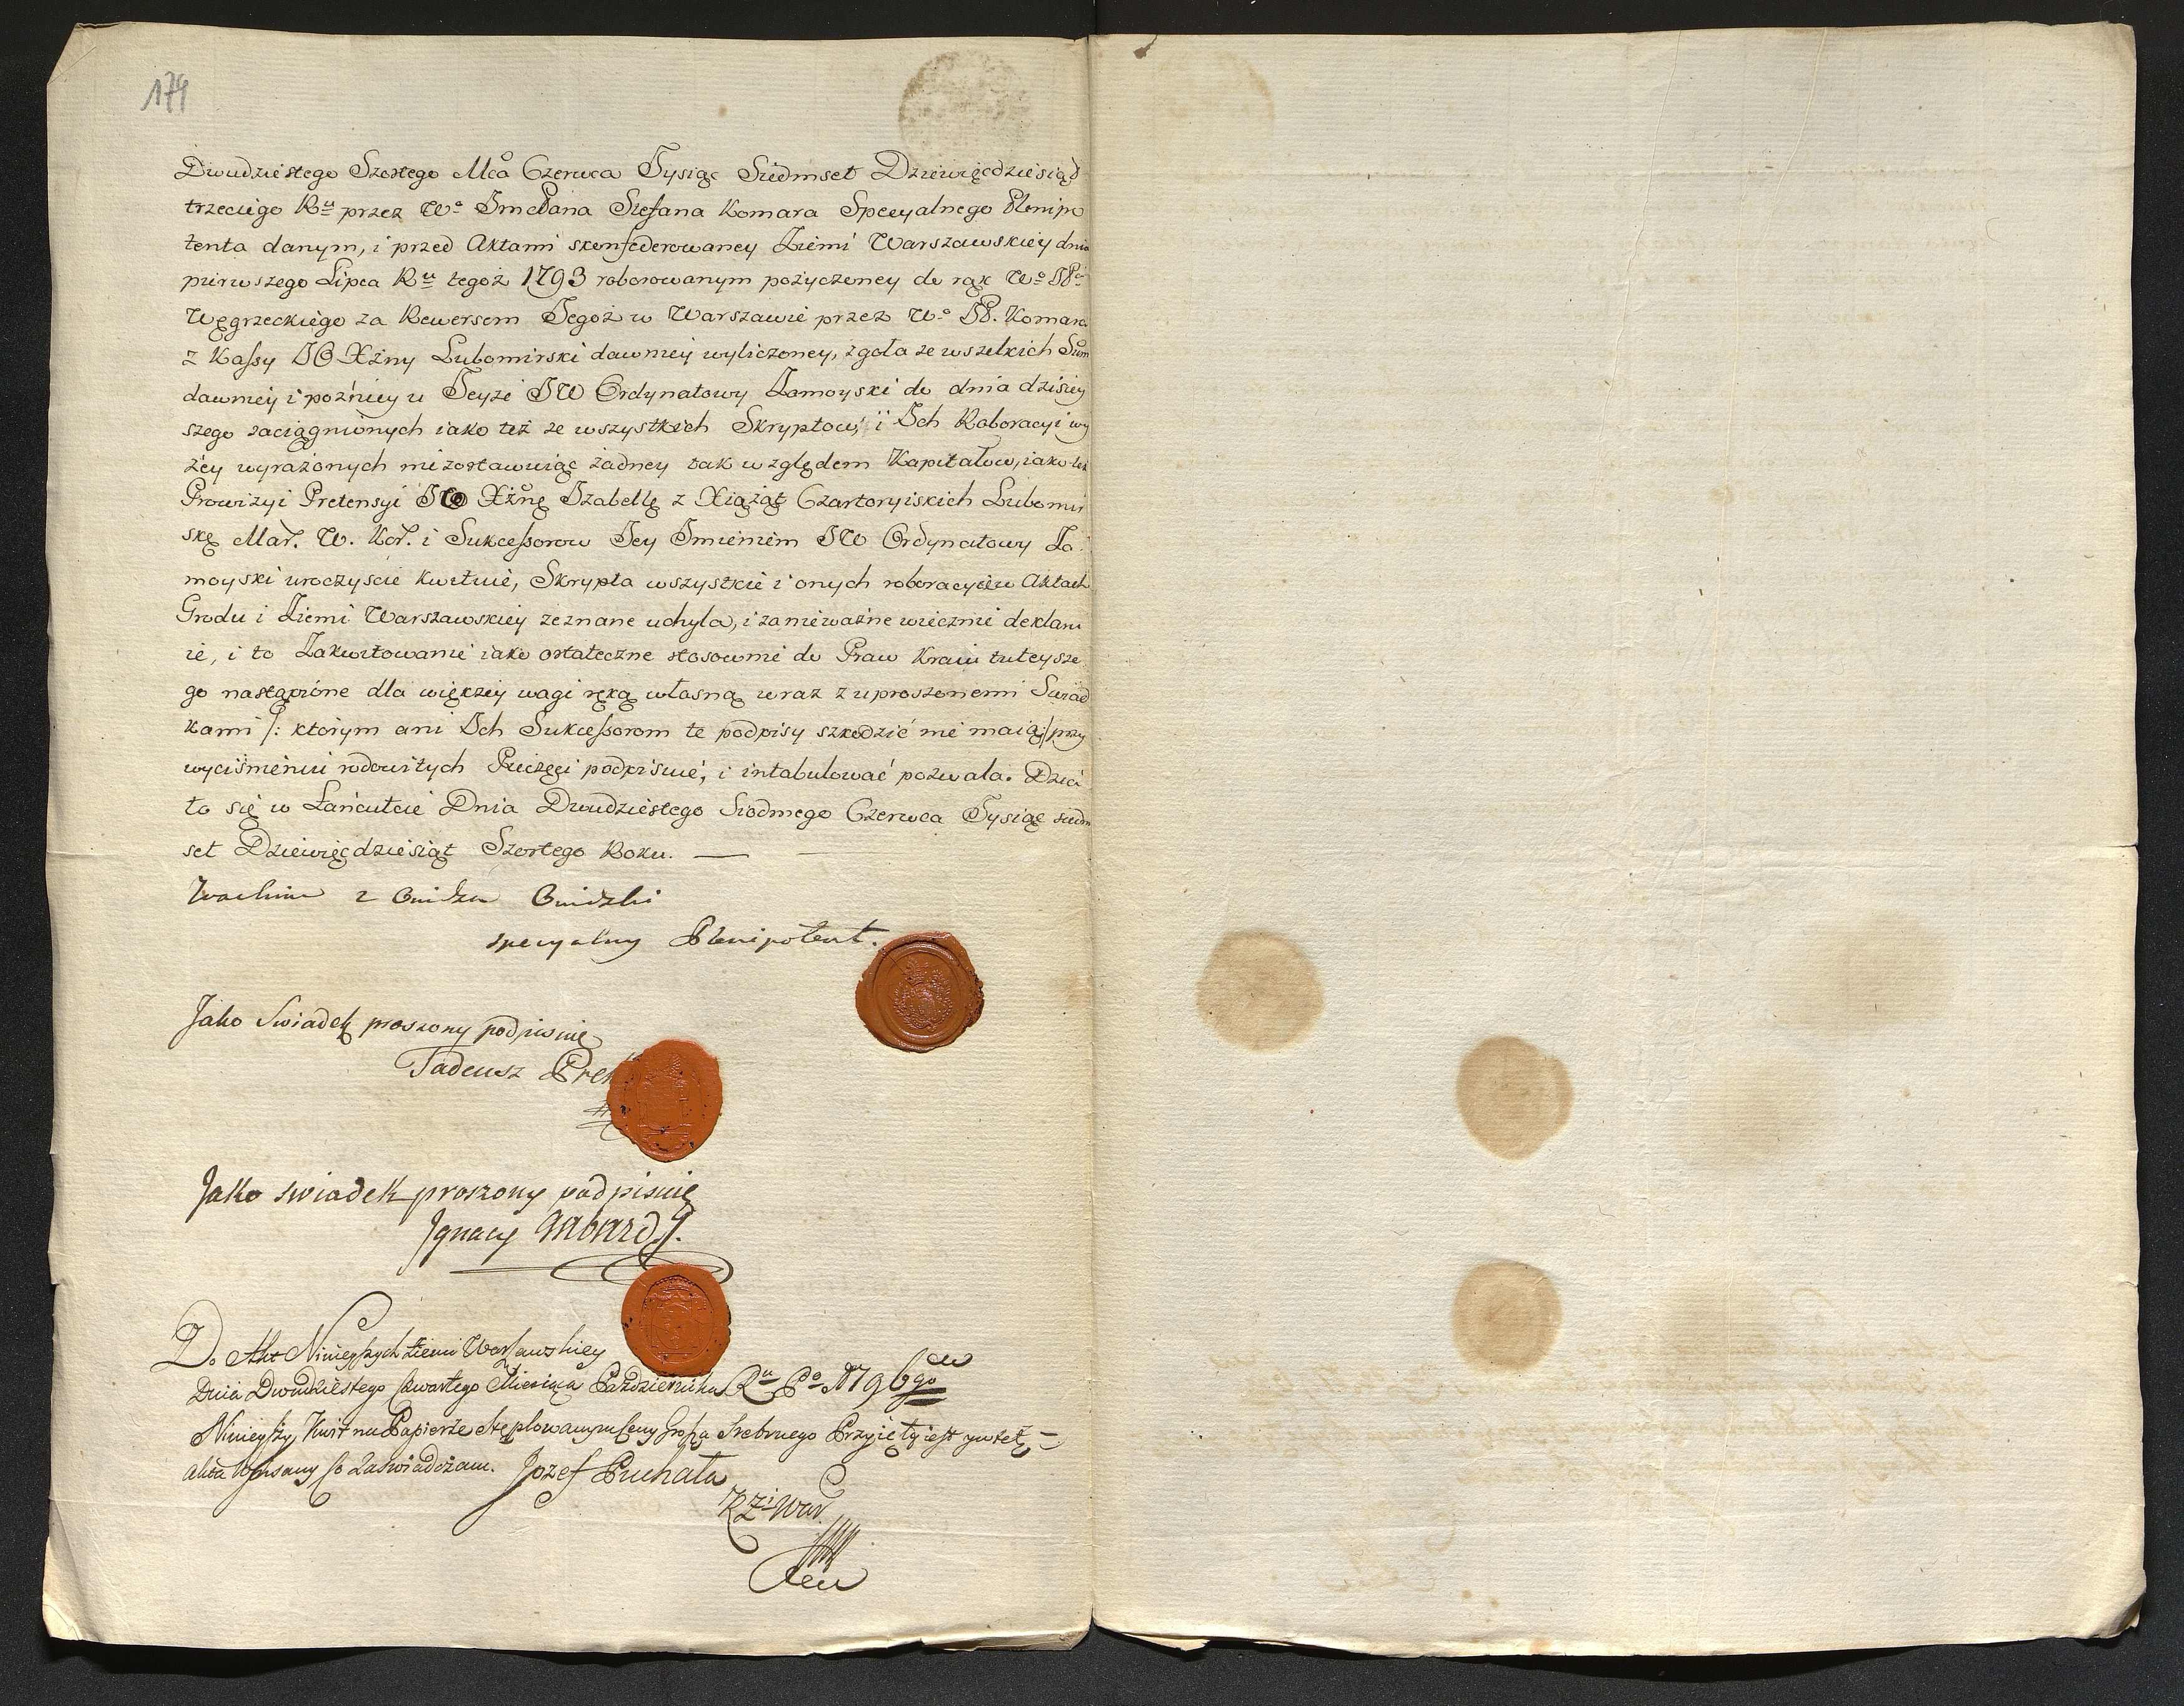 174
Dwudziestego Szostego Mca Czerwca Tysiąc Siedmset Dziewięcdziesiąd
trzeciego Ru przez Wo Jme Pana Stefana Komara Specyalnego Plenipo
tenta danym, i przed Aktami skonfederowaney Ziemi Warszawskiey dnia
pierwszego Lipca Ru tegoż 1793 roborowanym pożyczoney do rąk Wo JPa
Węgrzeckiego za Rewersem Tegoż w Warszawie przez Wo JP. Komara
z Kassy JO Xżny Lubomirski dawniey wyliczoney, zgoła ze wszelkich Sum
dawniey i pożniey u Teyże JW Ordynatowy Zamoyski do dnia dzisiey
szego zaciągnionych iako też ze wszystkich Skryptow, i Ich Roboracyi wy
żey wyrażonych niezostawuiąc żadney tak względem Kapitałow, iako też
Prowizyi Pretensyi JO Xżnę Izabellę z Xiążąt Czartoryiskich Lubomir
skę Mar. W. Kor. i Sukcessorow Jey Imieniem JW Ordynatowy Za
moyski uroczyscie kwituie, Skrypta wszystkie i onych roboracyie w Aktach
Grodu i Ziemi Warszawskiey zeznane uchyla, i zanieważne wiecznie deklaru
ie, i to Zakwitowanie iako ostateczne stosownie do Praw Kraiu tuteysze
go nastąpione dla większey wagi ręką własną wraz z uproszonemi Swiad
kami /: ktorym ani Ich Sukcessorom te podpisy szkodzić nie maią :/ przy
wyciśnieniu rodowitych Pieczęci podpisuie, i intabulować pozwala. Dzia
ło się w Łańcucie Dnia Dwudziestego Siodmego Czerwca Tysiąc siedm
set Dziewięcdziesiąt Szostego Roku. —
Joachim z
specyalny Plenipotent.
Jako Swiadek proszony podpisuię
Tadeusz
Jako swiadek proszony podpisuię
Ignacy
Do Akt Ninieyszych Ziemi Warszawskiey
Dnia Dwudziestego Czwartego Miesiąca Pazdziernika Ru Po 1796go
Ninieyszy Kwit na Papierze Stęplowanym Ceny Grosza Srebrnego Przyięty iest y w też
akta Wpisany Co Zaswiadczam. Jozef Puchała
RZiWar.